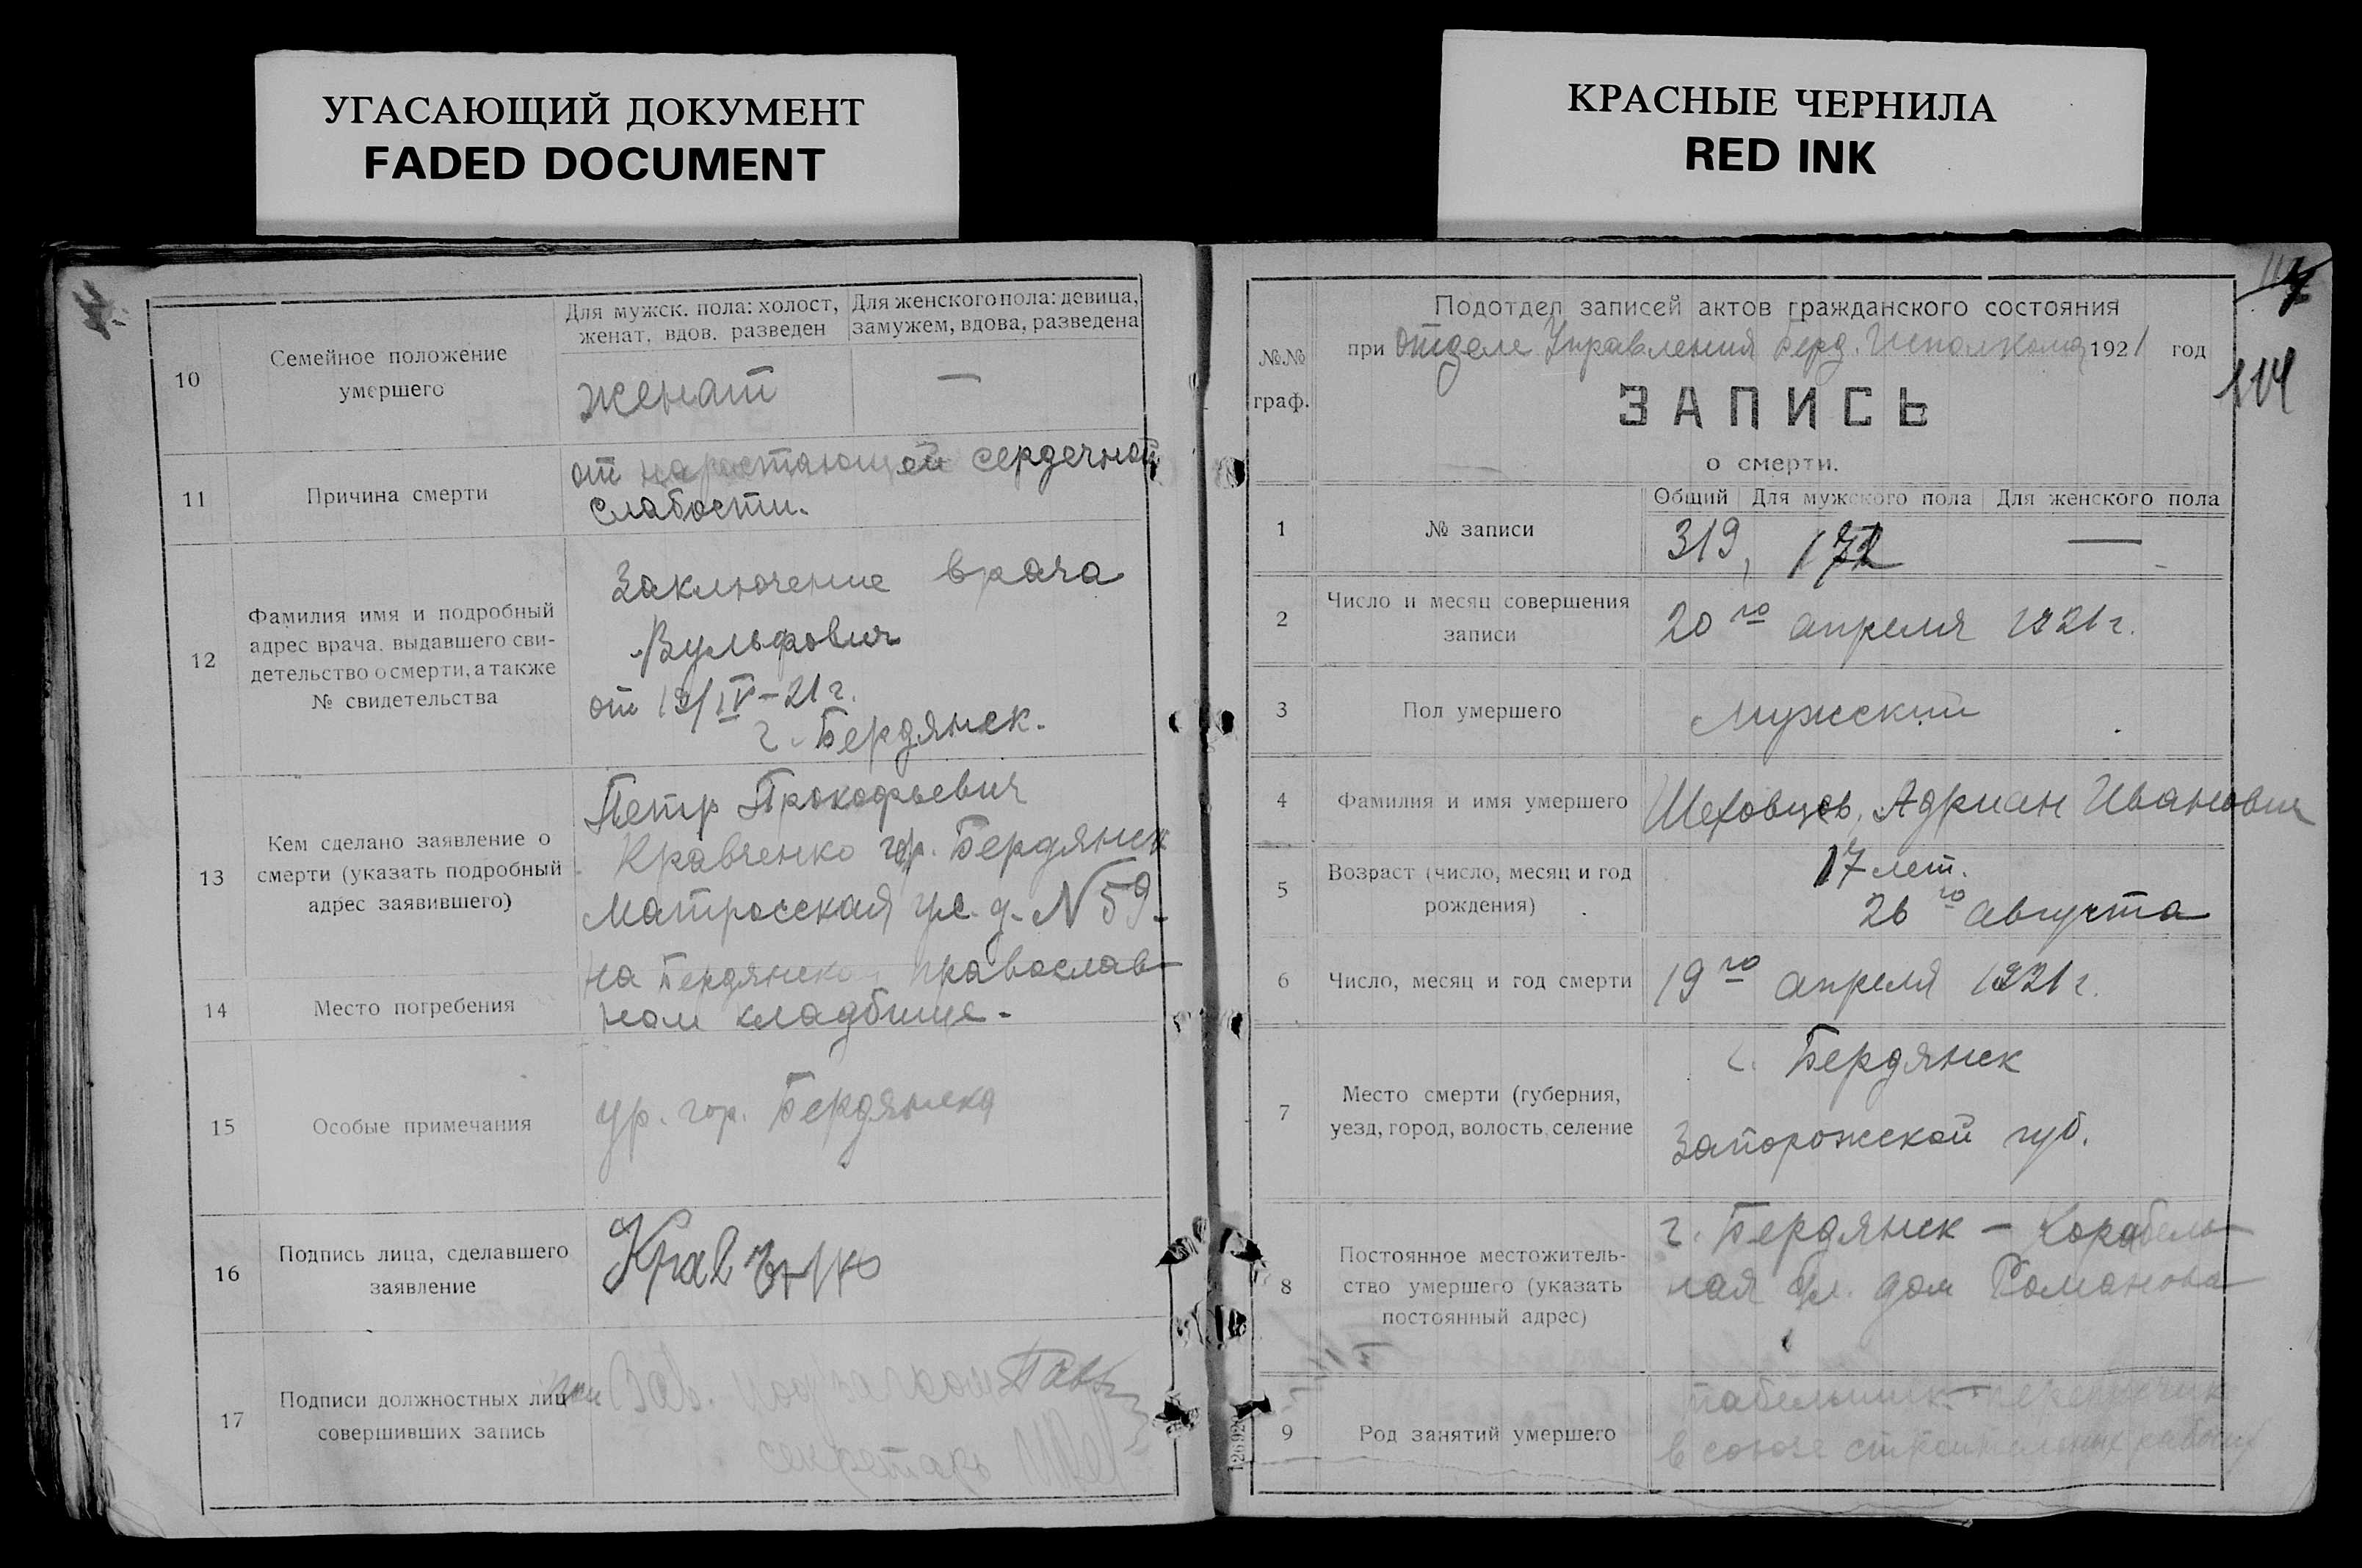 УГАСАЮЩИЙ ДОКУМЕНТ
FADED DOCUMENT
10
Семейное положение
умершего
Для мужск. пола: холост,
женат, вдов. разведен
Для женского пола: девица,
замужем, вдова, разведена
женат
—
11
Причина смерти
от нарастающей сердечной
слабости.
12
Фамилия имя и подробный
адрес врача. выдавшего сви-
детельство о смерти, а также
№ свидетельства
Заключение врача
Вульфович
от 19/IV-21 г.
г. Бердянск.
13
Кем сделано заявление о
смерти (указать подробный
адрес заявившего)
Петр Прокофьевич
Кравченко гор. Бердянск
Матросская ул. д. N 59.
14
Место погребения
на Бердянском православ-
ном кладбище.
15
Особые примечания
ур. гор. Бердянска
16
Подпись лица, сделавшего
заявление
Кравченко
17
Подписи должностных лиц
совершивших запись
Зав.
секретарь
КРАСНЫЕ ЧЕРНИЛА
RED INK
114
№№
граф.
Подотдел записей актов гражданского состояния
при отделе Управления Берд. Исполкома 1921 год
ЗАПИСЬ
о смерти.
Общий
Для мужского пола
Для женского пола
1
№ записи
319,
172
—
2
Число и месяц совершения
записи
20го апреля 1921 г.
3
Пол умершего
Мужский
4
Фамилия и имя умершего
Шеховцов, Адриан Иванович
5
Возраст (число, месяц и год
рождения)
17 лет.
26го августа
6
Число, месяц и год смерти
19го апреля 1921 г.
7
Место смерти (губерния,
уезд, город, волость, селение
г. Бердянск
Запорожской губ.
8
Постоянное местожитель-
ство умершего (указать
постоянный адрес)
г. Бердянск - Корабель-
ная ул. дом Романова
9
Род занятий умершего
табельщик-
в союзе строительных рабочих
12692